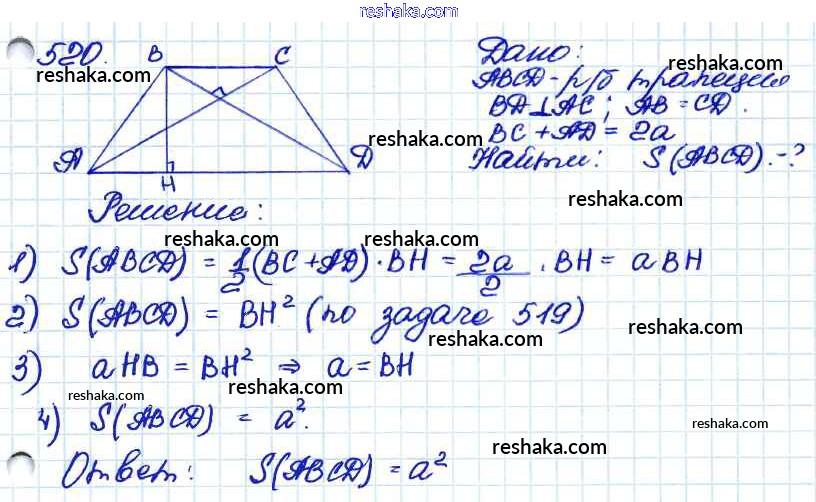 reshaka.com
520.
B C
A H D
Дано:
ABCD - р/б трапеция
BD⊥AC; AB = CD.
BC + AD = 2a
Найти: S(ABCD).-?
Решение:
1) S(ABCD) = 1/2(BC+AD)·BH = 2a/2 · BH = a BH
2) S(ABCD) = BH² (по задаче 519)
3) a HB = BH² ⇒ a = BH
4) S(ABCD) = a².
Ответ: S(ABCD) = a²
reshaka.com
reshaka.com
reshaka.com
reshaka.com
reshaka.com
reshaka.com
reshaka.com
reshaka.com
reshaka.com
reshaka.com
reshaka.com
reshaka.com
reshaka.com